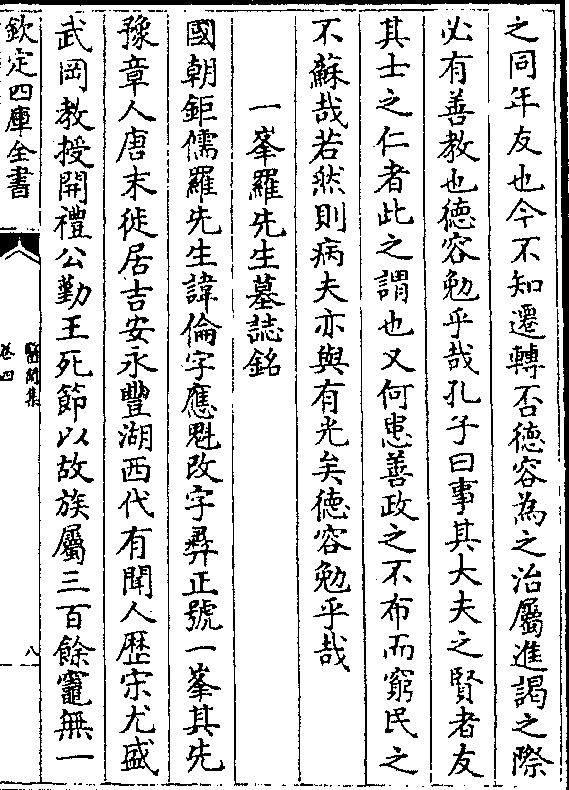 之同年友也今不知遷轉否徳容為之治屬進謁之際
必有善教也徳容勉乎哉孔子曰事其大夫之賢者友
其士之仁者此之謂也又何患善政之不布而窮民之
不蘇哉若然則病夫亦與有光矣徳容勉乎哉
一峯羅先生墓誌銘
國朝鉅儒羅先生諱倫字應魁改字彛正號一峯其先
豫章人唐末徙居吉安永豐湖西代有聞人歴宋尤盛
武岡教授開禮公勤王死節以故族屬三百餘竈無一
欽定四庫全書
醫閭集
卷四
八